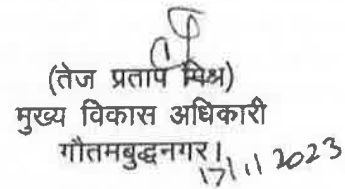 (तेज प्रताप मिश्र)
मुख्य विकास अधिकारी
गौतमबुद्धनगर।
17/11/2023